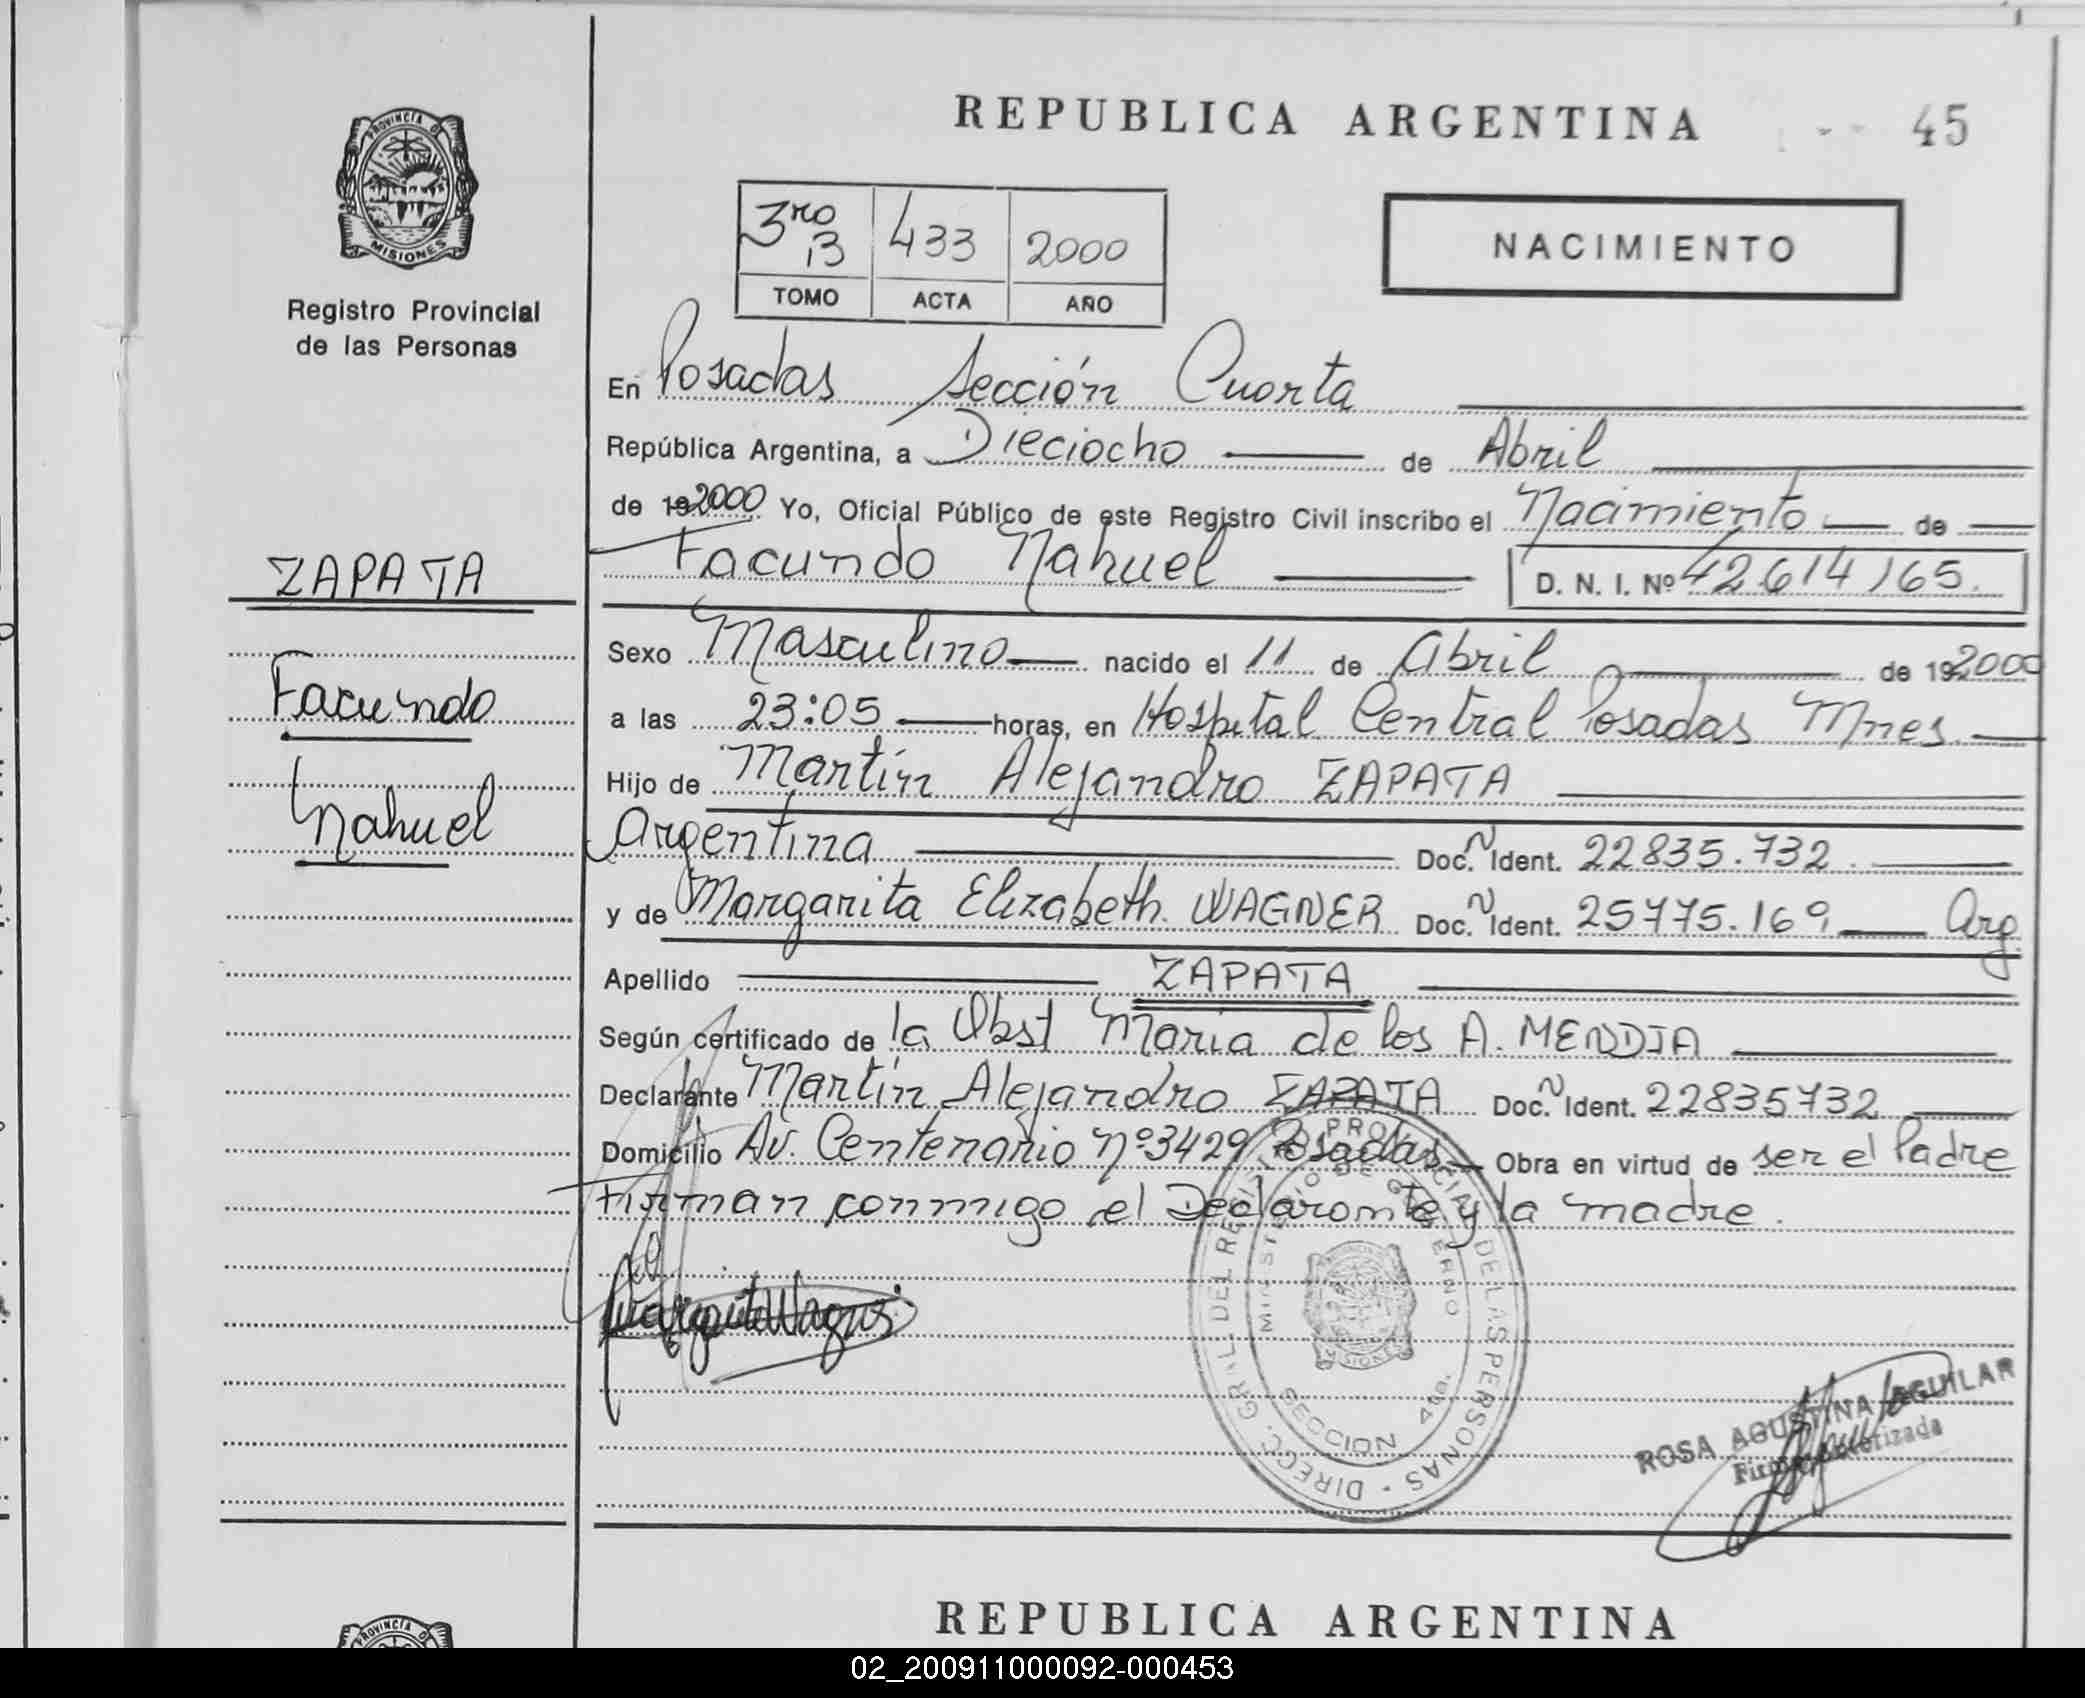 REPUBLICA ARGENTINA
45
PROVINCIA DE
MISIONES
Registro Provincial
de las Personas
3ro B 433 2000
TOMO ACTA AÑO
NACIMIENTO
En Posadas Sección Cuarta
República Argentina, a Dieciocho de Abril
de 192000 Yo, Oficial Público de este Registro Civil inscribo el Nacimiento de
Facundo Nahuel D. N. I. Nº 42.614165.
ZAPATA
Facundo
Nahuel
Sexo Masculino nacido el 11 de Abril de 192000
a las 23:05 horas, en Hospital Central Posadas Mnes
Hijo de Martín Alejandro ZAPATA
Argentina Doc. N Ident. 22835.732
y de Margarita Elizabeth WAGNER Doc. N Ident. 25775.169 Arg.
Apellido ZAPATA
Según certificado de la Obst Maria de los A. MENDIA
Declarante Martín Alejandro ZAPATA Doc. N Ident. 22835732
Domicilio Av. Centenario Nº 3429 Posadas Obra en virtud de ser el Padre
Firman conmigo el Declarante y la madre.
Margarita Wagner
DIRECC. GRAL DEL REGISTRO PROVINCIAL DE LAS PERSONAS
MINISTERIO DE GOBIERNO
SECCION 4ta.
ROSA AGUSTINA AGUILAR
Firma Autorizada
REPUBLICA ARGENTINA
PROVINCIA D
02_200911000092-000453